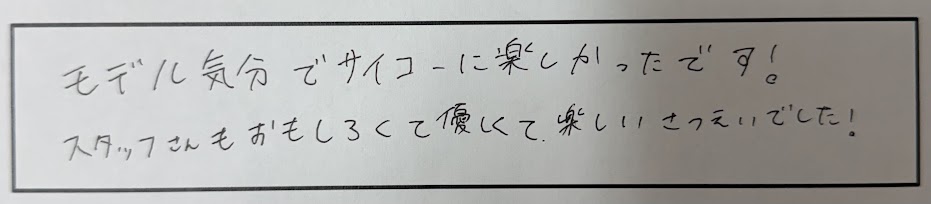 モデル気分でサイコーに楽しかったです!
スタッフさんもおもしろくて優しくて、楽しいさつえいでした!